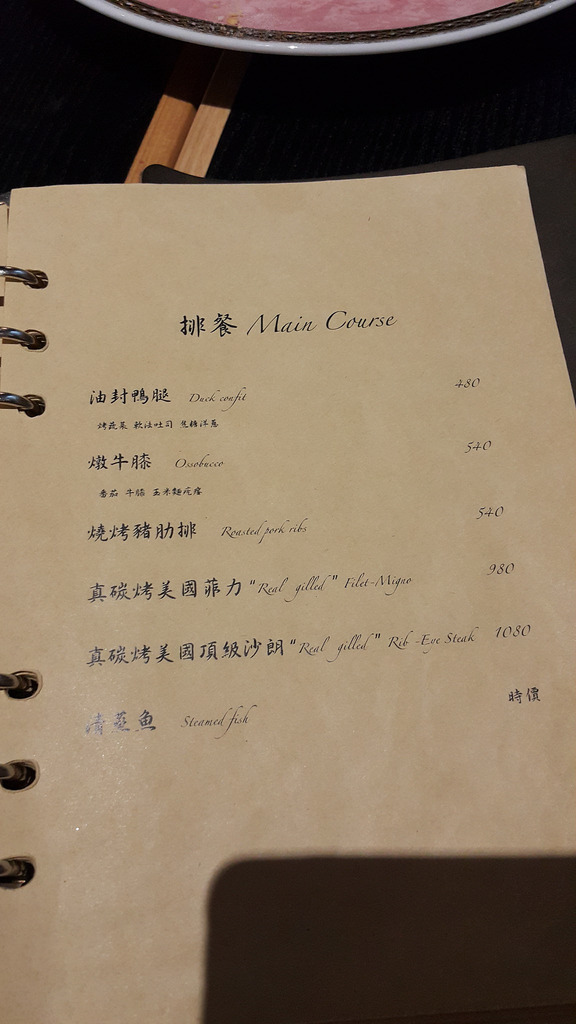 排餐 Main Course
油封鴨腿 Duck confit 480
烤蔬菜 軟法吐司 焦糖洋蔥
燉牛膝 Ossobucco 540
番茄 牛膝 玉米麵疙瘩
燒烤豬肋排 Roasted pork ribs 540
真碳烤美國菲力 "Real gilled" Filet-Migno 980
真碳烤美國頂級沙朗 "Real gilled" Rib -Eye Steak 1080
清蒸魚 Steamed fish 時價